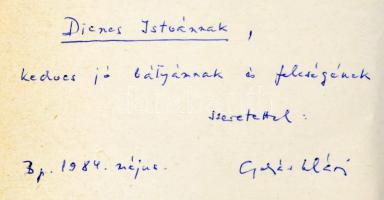 Dienes Istvánnak,
kedves jó bátyámnak és feleségének
szeretettel:
Bp. 1984. május.